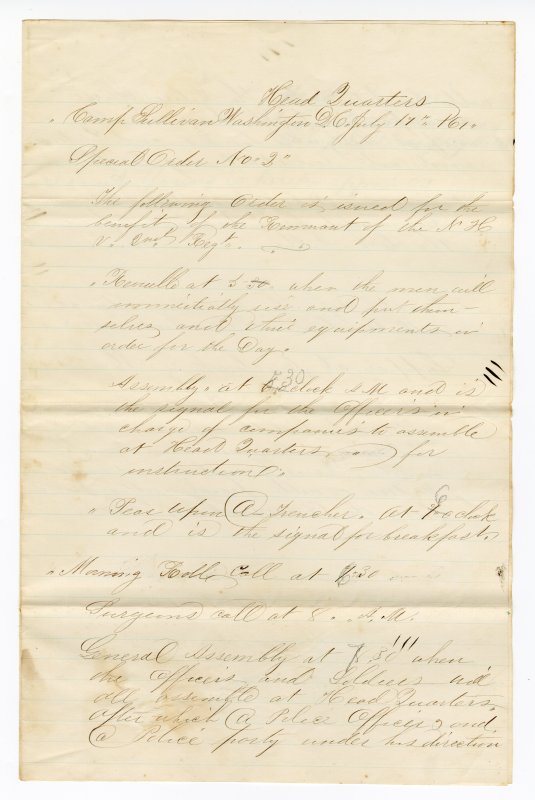 Head Quarters
"Camp Sullivan Washington D.C. July 17th 1861"
Special Order No "2"
The following Order is issued for the
benefit of the Remnant of the N H
v. 2nd Regt.
"Reveille at 5 30 when the men will
immeditially rise and put them-
selves and their equipments in
order for the Day.
5 30
Assembly. at o'clock A M and is
the signal for the Officers in
charge of companies to assemble
at Head Quarters for
instruction.
"Peas Upon A Trencher. at 6 oclock
and is the signal for breakfast.
"Morning Rolle Call at 30
Surgeons call at 8 . A.M.
General Assembly at 8 30 when
the Officers and Soldiers will
all assemble at Head Quarters.
After which A Police Officer and
a Police party under his direction